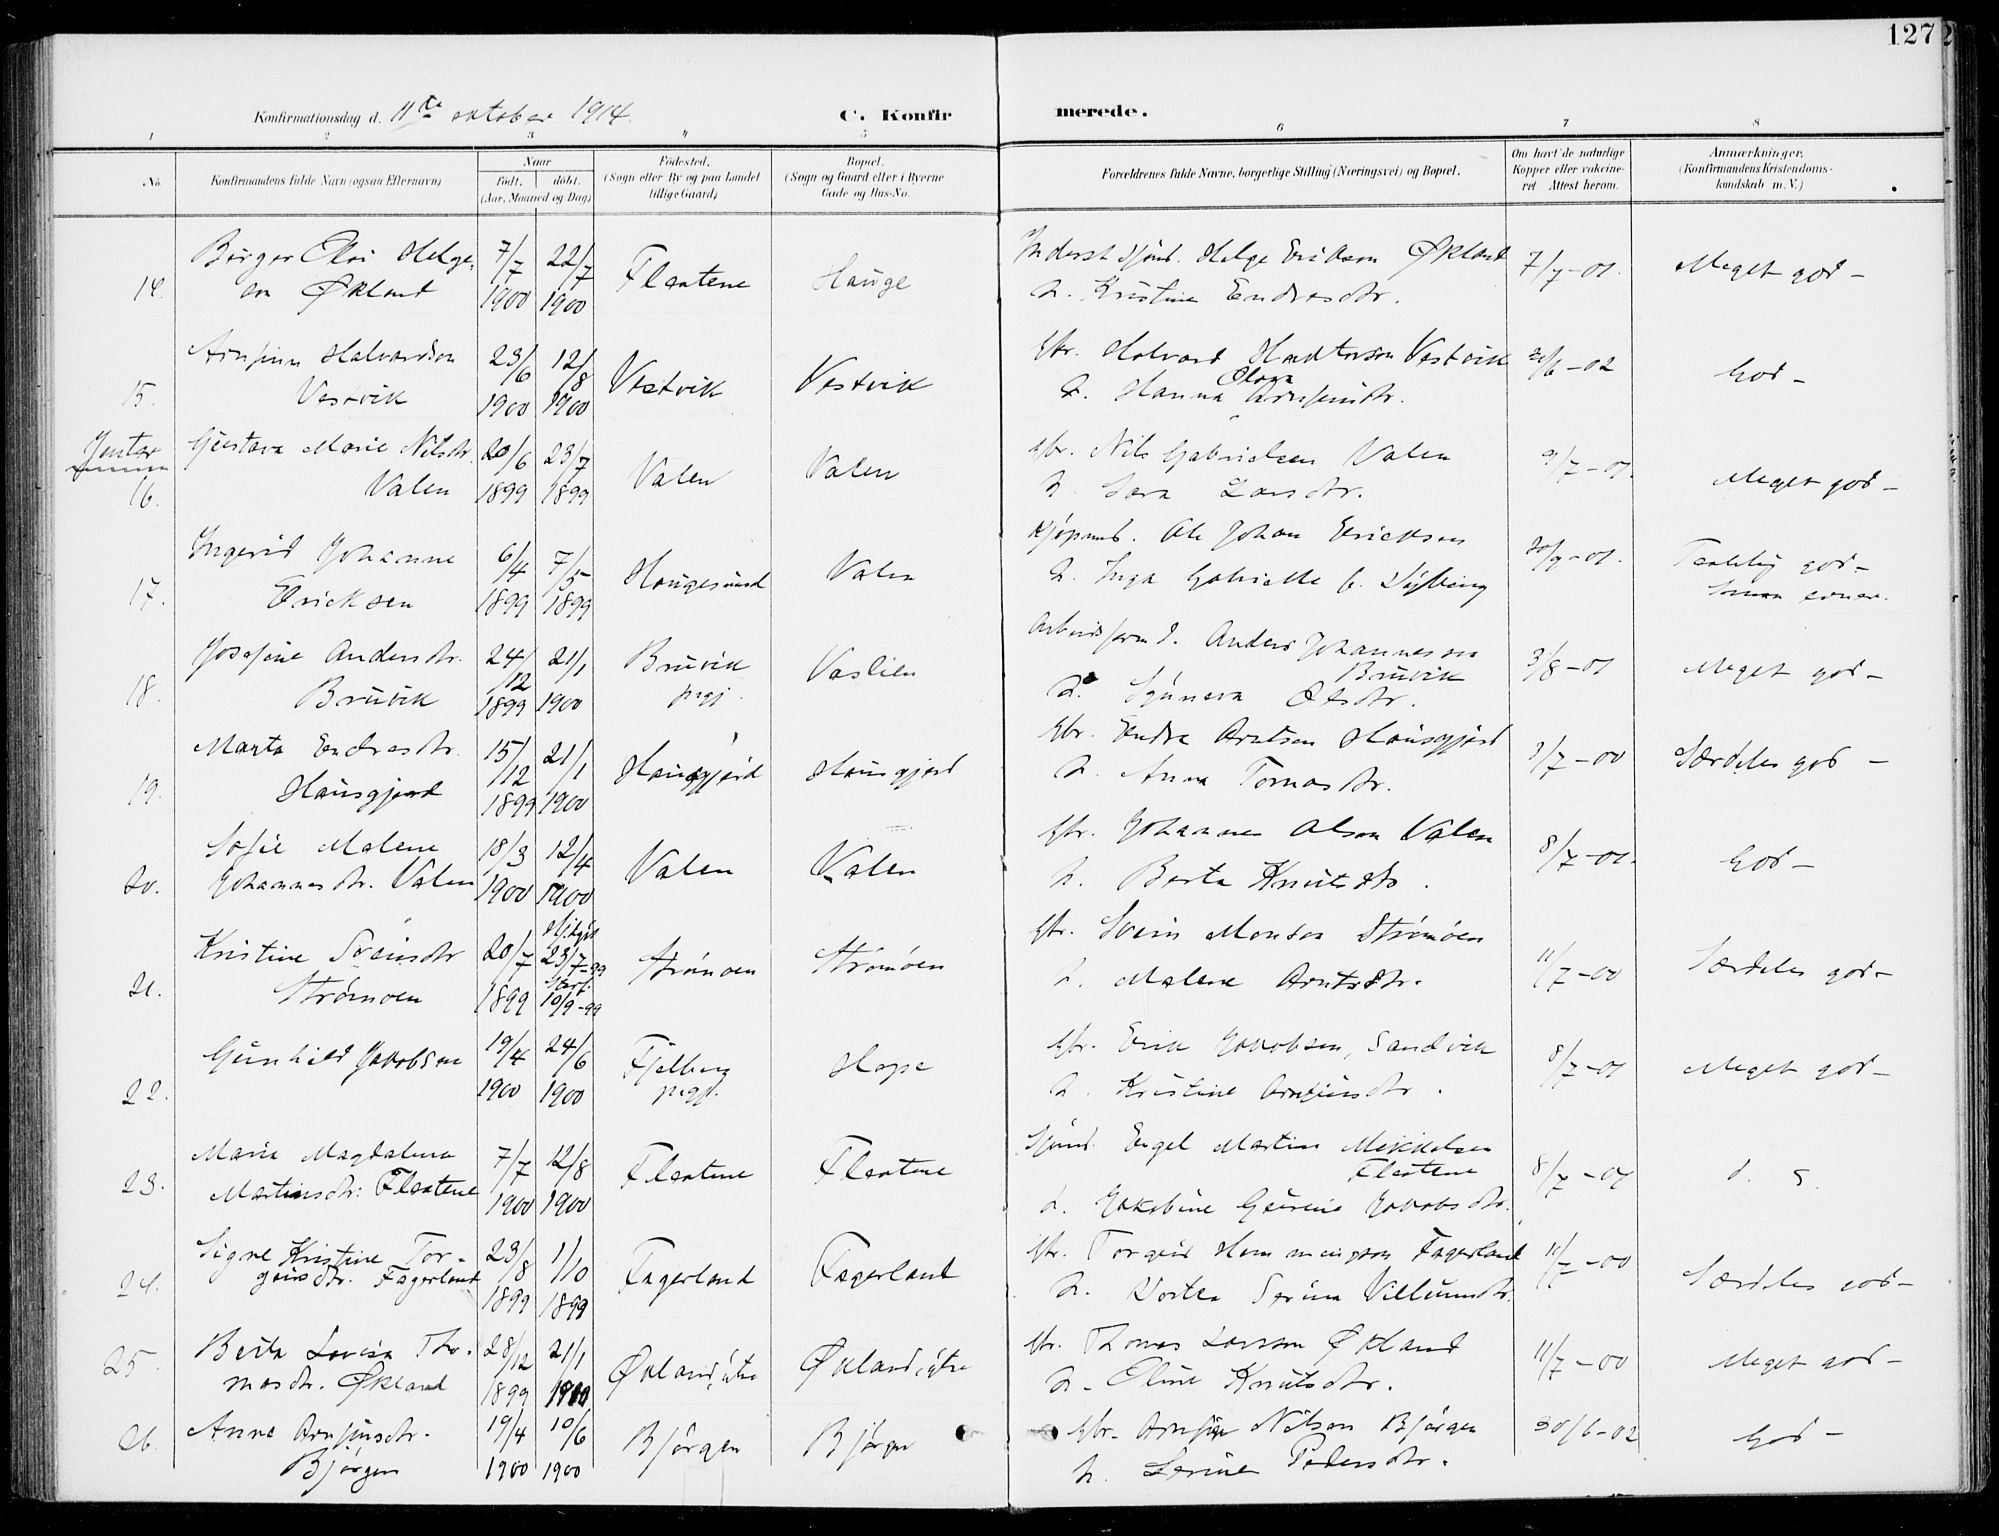 127
Konfirmationsdag d. 11te oktober 1914.
C. Konfirmerede.
1 2 3 4 5 6 7 8
No. Konfirmandens fulde Navn (ogsaa Efternavn) Naar født. døbt. (Aar, Maaned og Dag) Fødested. (Sogn eller By og paa Landet tillige Gaard) Bopæl. (Sogn og Gaard eller i Byerne Gade og Hus-No. Forældrenes fulde Navne, borgerlige Stilling (Næringsvei) og Bopæl. Om havt de naturlige Kopper eller vakcineret. Attest herom. Anmærkninger. (Konfirmandens Kristendomskundskab m. V.)
Birger Olai Helge- 7/7 22/7 Inderst sjømd. Helge Erikson Økland
14. son Økland 1900 1900 Flaatene Hauge h. Kristine Endresdtr. 7/7-01. Meget god-
Arnfinn Halvardson 23/6 12/8 Gbr. Halvard Vestvik
15. Vestvik 1900 1900 Vestvik Vestvik h. Hanna Olava Arnfinsdtr. 20/6-02 God-
Jenter
Gustava Marie Nilsdtr. 20/6 23/7 Gbr. Nils Gabrielsen Valen
16. Valen 1899 1899 Valen Valen h. Sara Larsdtr. 9/7-01. Meget god-
Ingerid Johanne 6/4 7/5 Kjøpmd. Ole Johan Ericksen
17. Ericksen 1899 1899 Haugesund Valen h. Inga Gabrielle f. 20/9-01. Taalelig god- Smaa evner.
Josefine Andersdtr. 24/12 21/1 Arbeidsformd. Anders Johannesson Bruvik
18. Bruvik 1899 1900 Bruvik prgj. Vaslien h. Synneva Olsdtr. 3/8-01 Meget god-
Marta Endresdtr. 15/12 21/1 Gbr. Endre Arntsen Hausgjerd
19. Hausgjerd 1899 1900 Hausgjerd Hausgjerd h. Anna Tomasdtr. 9/7-00 Særdeles god-
Sofie Malene 18/3 12/4 Gbr. Johannes Olson Valen
20. Johannesdtr. Valen 1900 1900 Valen Valen h. Berta Knutsdtr. 8/7-01. God-
Kristine Sveinsdtr 20/7 Hjdøpt 23/7-99 Gbr. Svein Monson Strømøen
21. Strømøen 1899 Stadf. 10/9-99 Strømøen Strømøen h. Malene Arntsdtr. 11/7-00 Særdeles god-
Gunhild Jakobsen 19/4 24/6 Gbr. Erik Jakobsen, Sandvik
22. 1900 1900 Fjelberg prgj. Hope h. Kristine Arnfinsdtr. 8/7-01 Meget god-
Maria Magdalena 7/7 12/8 Sjømd. Engel Martin Mikkelsen Flaatene
23. Martinsdtr. Flaatene 1900 1900 Flaatene Flaatene h. Jakobine Gurine Jakobsdtr. 8/7-01 d. s.
Signe Kristine Tor- 23/8 1/10 Gbr. Torgeir Hemmingson Fagerland
24. geirsdtr. Fagerland 1899 1899 Fagerland Fagerland h. Dortea Serina Villumsdtr. 11/7-00 Særdeles god-
Berta Lovisa Tho- 28/12 21/1 Gbr. Thomas Larson Økland
25. masdtr. Økland 1899 1900 Økland, ytre Økland, ytre h. Oline Knutsdtr. 11/7-00 Meget god-
Anne Arnfinsdtr. 19/4 10/6 Gbr. Arnfin Nilson Bjørgen
26. Bjørgen 1900 1900 Bjørgen Bjørgen h. Serine Pedersdtr. 30/6-02 God-